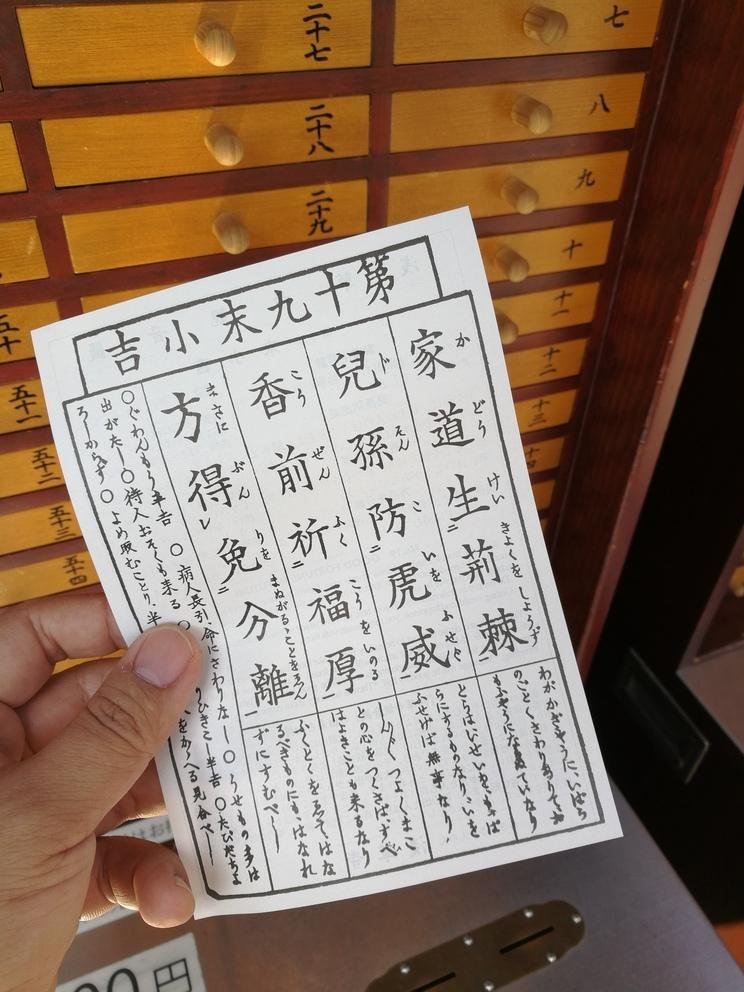 二十七
七
二十八
八
二十九
九
十
十一
十二
十三
十四
五十
五十一
五十二
五十三
五十四
第十九末小吉
家道生荊棘
か どう けい きよくを しようず
わがかぎそうに、いばら
のごとくさわりありてお
兒孫防虎威
じ そん こ いを ふせぐ
とらはいせいをもつぱ
らにするものなり、いを
ふせげば無事なり、
香前祈福厚
こう ぜん ふく こうをいのる
つよくまこ
との心をつくさばすべ
はよきことも来るなり
方得免分離
まさに ぶん りを まぬがるゝことをゑん
ふくとくをゑてはな
るべきものにもはなれ
ずにすむべし
〇ぐわんもう半吉 〇病人長引、命にさわりなし 〇うせもの多は
出がたし 〇待人おそくも来る 〇 半吉 〇たびだちよ
ろしからず 〇よめ取むことり、半 をかゝへる見合べし
00円